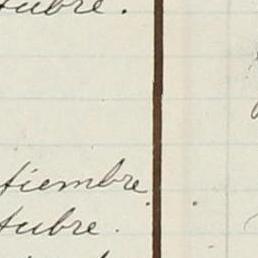 tubre.
tiembre.
tubre.